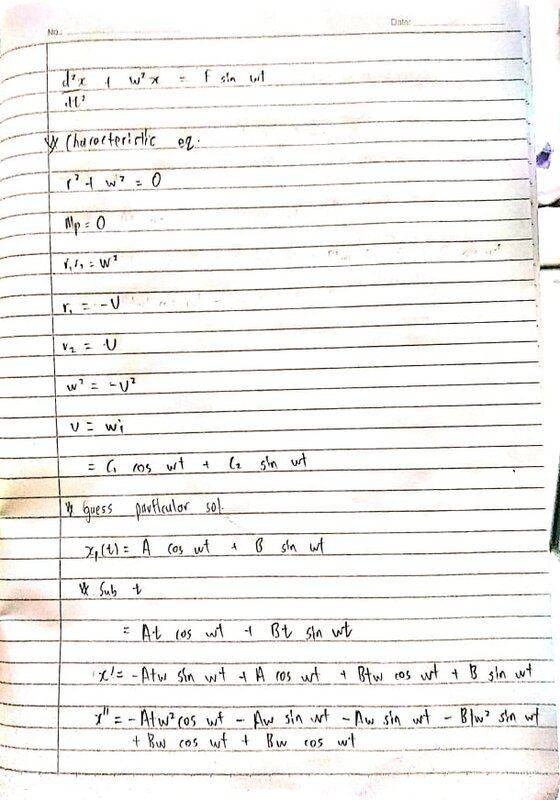 No.
Date:
d²x/dt² + w²x = f sin wt
Characteristic eq.
r² + w² = 0
Mp = 0
r₁r₂ = w²
r₁ = -U
r₂ = U
w² = -U²
U = wi
= C₁ cos wt + C₂ sin wt
Guess particular sol.
xₚ(t) = A cos wt + B sin wt
Sub t
= At cos wt + Bt sin wt
x' = -Atw sin wt + A cos wt + Btw cos wt + B sin wt
x'' = -Atw² cos wt - Aw sin wt - Aw sin wt - Btw² sin wt
+ Bw cos wt + Bw cos wt